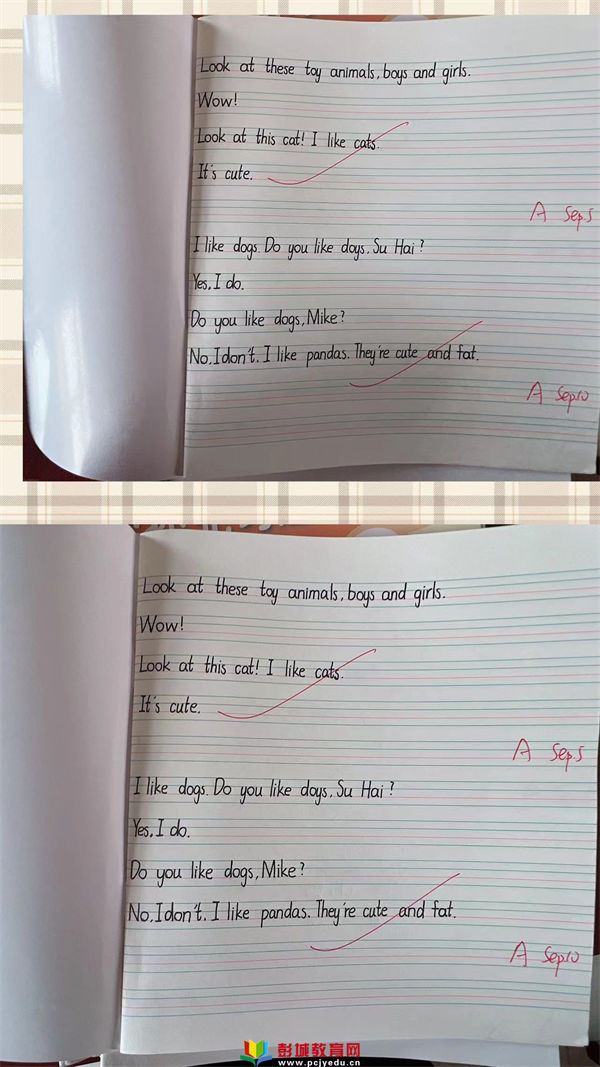 Look at these toy animals, boys and girls.
Wow!
Look at this cat! I like cats.
It's cute.
A Sep.5
I like dogs. Do you like doys, Su Hai?
Yes, I do.
Do you like dogs, Mike?
No, I don't. I like pandas. They're cute and fat.
A Sep.10
Look at these toy animals, boys and girls.
Wow!
Look at this cat! I like cats.
It's cute.
A Sep.5
I like dogs. Do you like doys, Su Hai?
Yes, I do.
Do you like dogs, Mike?
No, I don't. I like pandas. They're cute and fat.
A Sep.10
彭城教育网
www.pcjyedu.cn